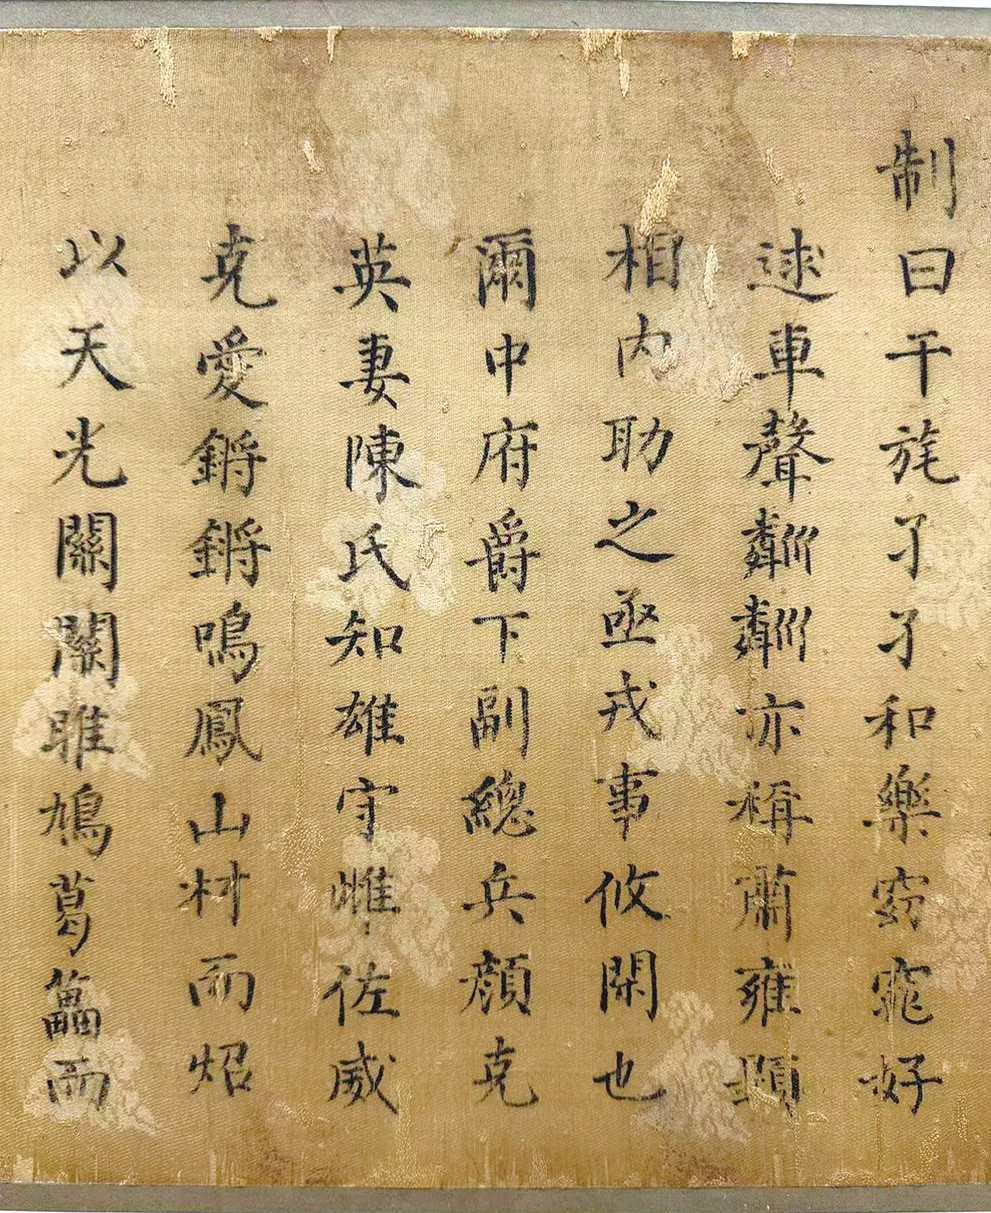 制曰干旄孑孑和樂窈窕好
逑車聲粼粼亦稱肅雍顯
相內助之亟戎事攸閑也
爾中府爵下副總兵顏克
英妻陳氏知雄守雌佐威
克愛鏘鏘鳴鳳山材而炤
以天光關關雎鳩葛藟而